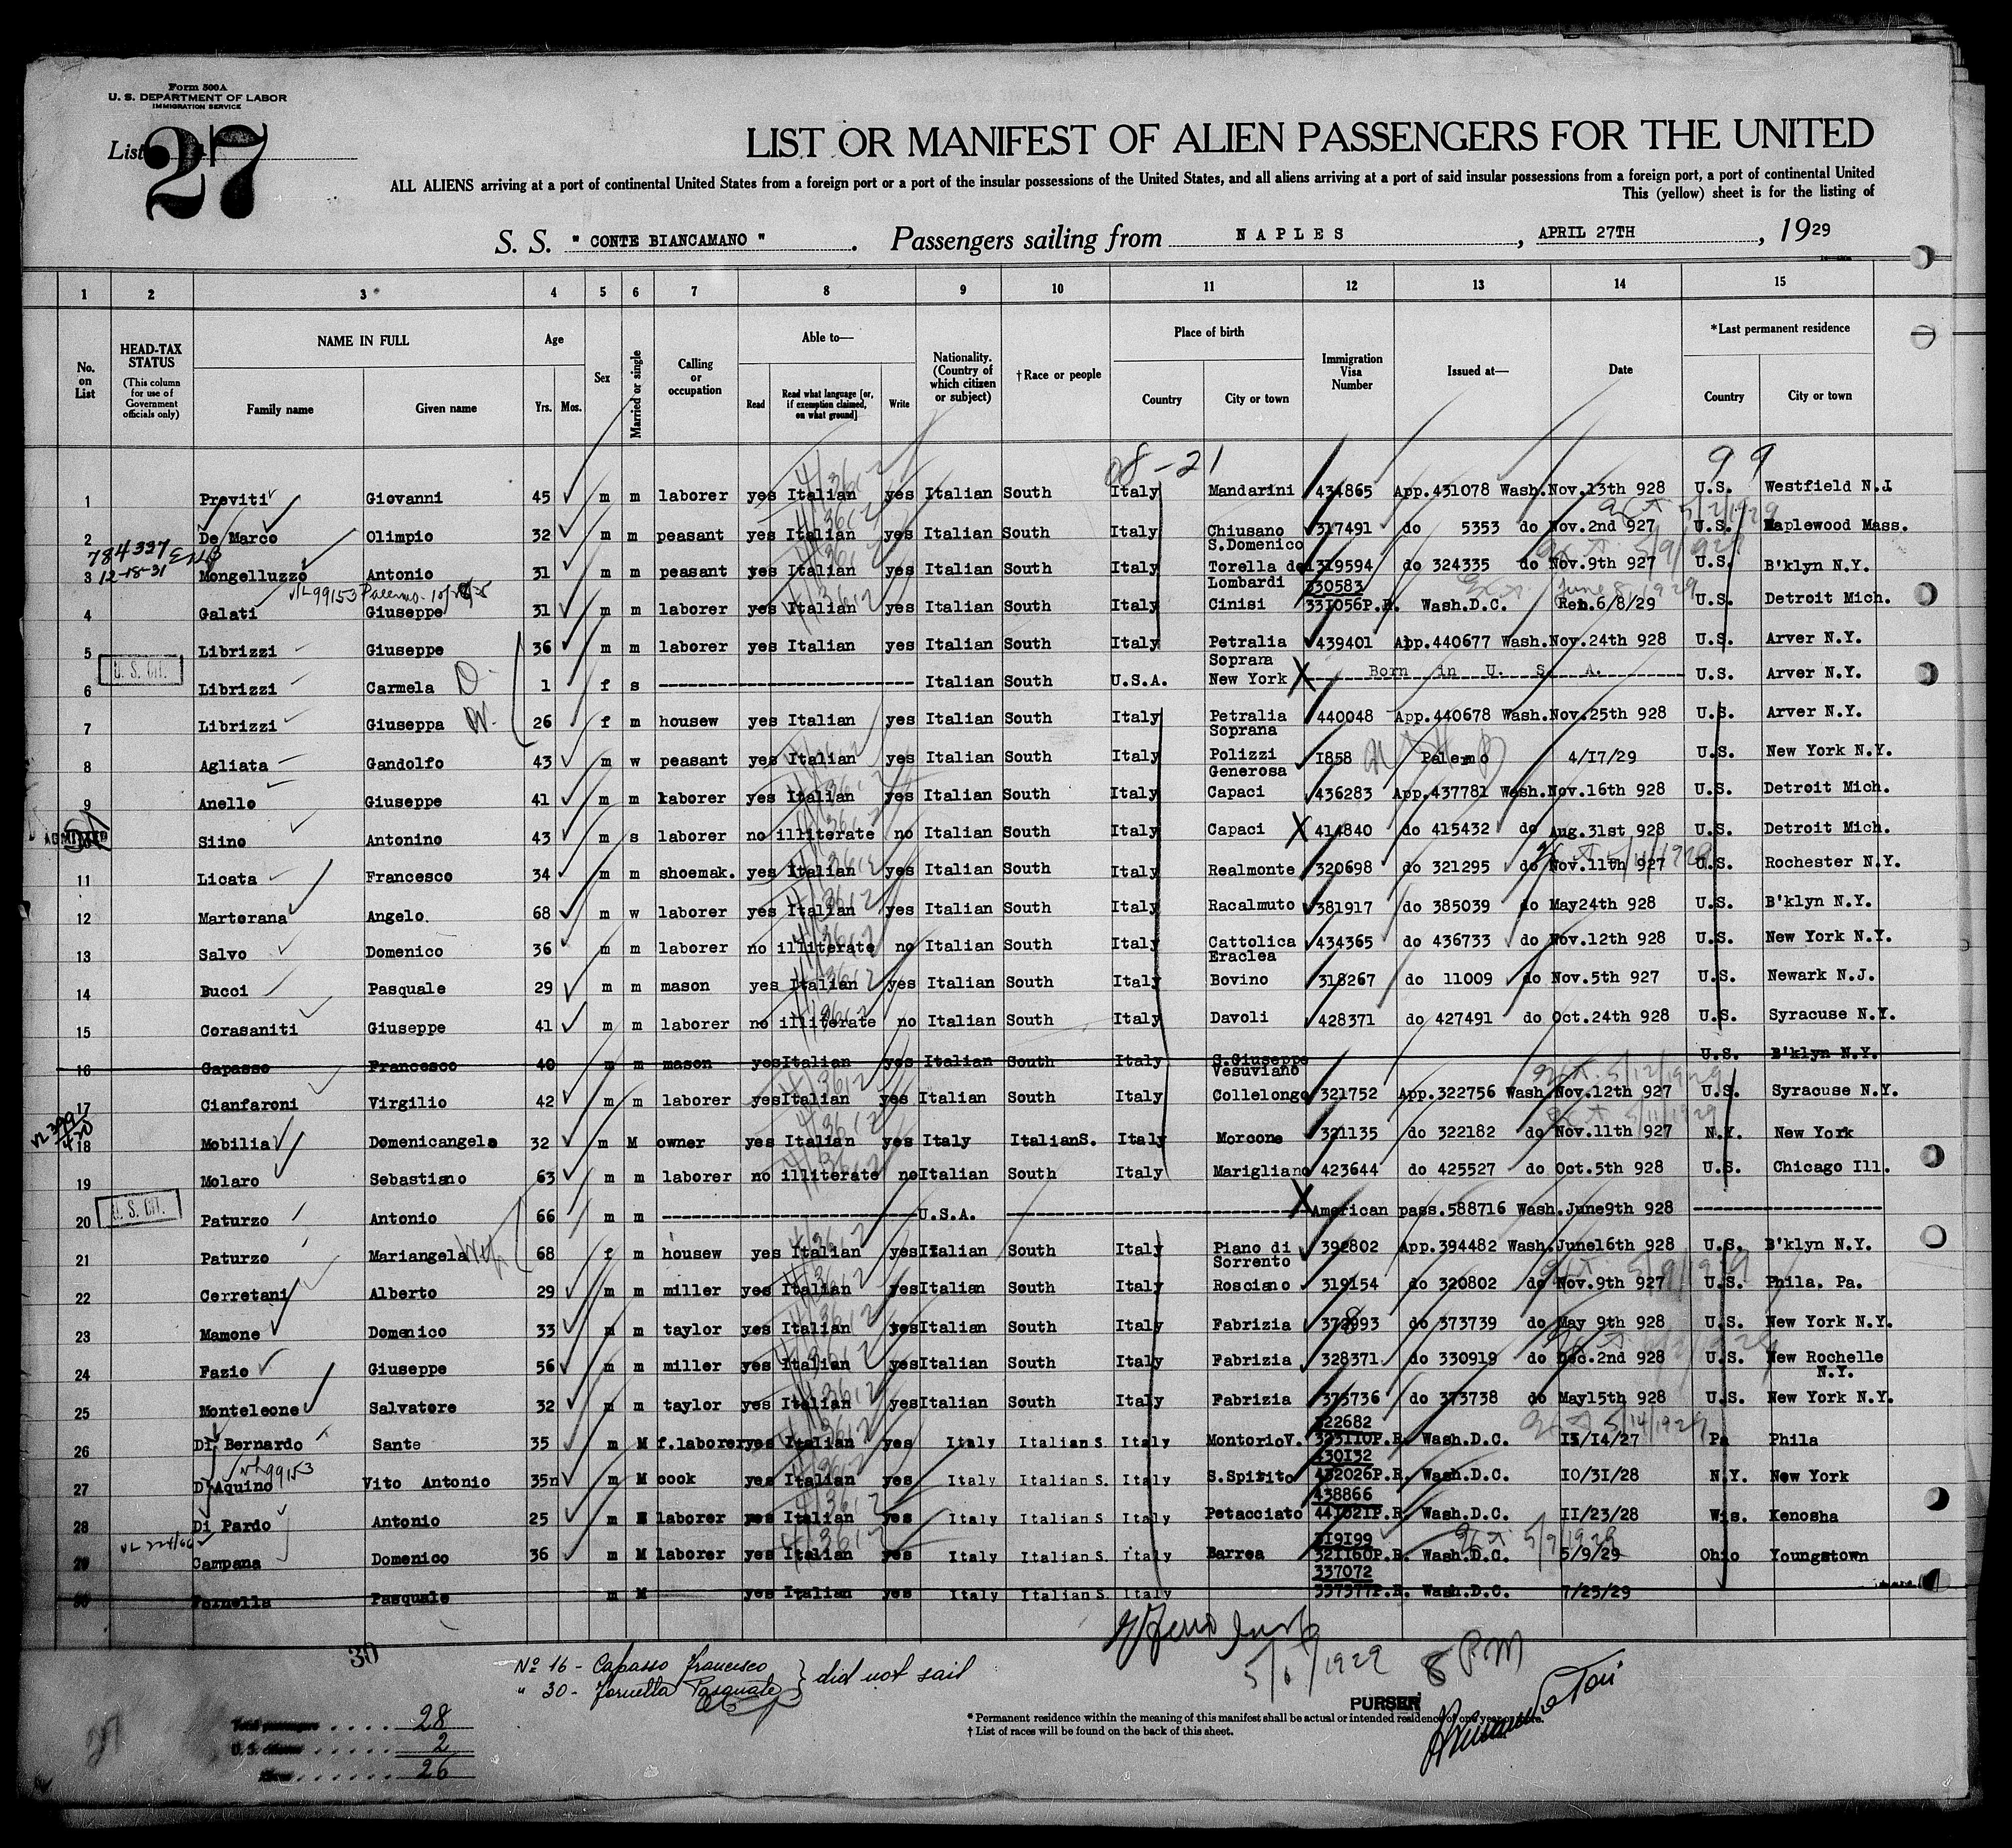 Form 500A
U. S. DEPARTMENT OF LABOR
IMMIGRATION SERVICE
List 27
LIST OR MANIFEST OF ALIEN PASSENGERS FOR THE UNITED
ALL ALIENS arriving at a port of continental United States from a foreign port or a port of the insular possessions of the United States, and all aliens arriving at a port of said insular possessions from a foreign port, a port of continental United
This (yellow) sheet is for the listing of
S. S. " CONTE BIANCAMANO " . Passengers sailing from NAPLES , APRIL 27TH , 1929
1 2 3 4 5 6 7 8 9 10 11 12 13 14 15
No. on List
HEAD-TAX STATUS
(This column for use of Government officials only)
NAME IN FULL
Family name Given name
Age
Yrs. Mos.
Sex
Married or single
Calling or occupation
Able to—
Read Read what language [or, if exemption claimed, on what ground] Write
Nationality. (Country of which citizen or subject)
† Race or people
Place of birth
Country City or town
Immigration Visa Number
Issued at—
Date
*Last permanent residence
Country City or town
08-21 99
1 Previti Giovanni 45 m m laborer yes Italian yes Italian South Italy Mandarini 434865 App.431078 Wash. Nov.13th 928 U.S. Westfield N.J.
2 De Marco Olimpio 32 m m peasant yes Italian yes Italian South Italy Chiusano S.Domenico 317491 do 5353 do Nov.2nd 927 U.S. Maplewood Mass.
784337
12-18-31
3 Mongelluzzo Antonio 31 m m peasant yes Italian yes Italian South Italy Torella dei Lombardi 319594 do 324335 do Nov.9th 927 U.S. B'klyn N.Y.
4 Galati Giuseppe 31 m m laborer yes Italian yes Italian South Italy Cinisi 330583 331056P.R. Wash.D.C. Reh.6/8/29 U.S. Detroit Mich.
5 Librizzi Giuseppe 36 m m laborer yes Italian yes Italian South Italy Petralia Soprana 439401 App.440677 Wash. Nov.24th 928 U.S. Arver N.Y.
U. S. CIT.
6 Librizzi Carmela D. 1 f s Italian South U.S.A. New York Born in U. S. A. U.S. Arver N.Y.
7 Librizzi Giuseppa W. 26 f m housew yes Italian yes Italian South Italy Petralia Soprana 440048 App.440678 Wash. Nov.25th 928 U.S. Arver N.Y.
8 Agliata Gandolfo 43 m w peasant yes Italian yes Italian South Italy Polizzi Generosa 1858 Palermo 4/17/29 U.S. New York N.Y.
9 Anello Giuseppe 41 m m kaborer yes Italian yes Italian South Italy Capaci 436283 App.437781 Wash. Nov.16th 928 U.S. Detroit Mich.
ADMITTED
Siino Antonino 43 m s laborer no illiterate no Italian South Italy Capaci 414840 do 415432 do Aug.31st 928 U.S. Detroit Mich.
11 Licata Francesco 34 m m shoemak. yes Italian yes Italian South Italy Realmonte 320698 do 321295 do Nov.11th 927 U.S. Rochester N.Y.
12 Martorana Angelo. 68 m w laborer yes Italian yes Italian South Italy Racalmuto 381917 do 385039 do May24th 928 U.S. B'klyn N.Y.
13 Salvo Domenico 36 m m laborer no illiterate no Italian South Italy Cattolica Eraclea 434365 do 436733 do Nov.12th 928 U.S. New York N.Y.
14 Bucci Pasquale 29 m m mason yes Italian yes Italian South Italy Bovino 318267 do 11009 do Nov.5th 927 U.S. Newark N.J.
15 Corasaniti Giuseppe 41 m m laborer no illiterate no Italian South Italy Davoli 428371 do 427491 do Oct.24th 928 U.S. Syracuse N.Y.
16 Capasso Francesco 40 m m mason yes Italian yes Italian South Italy S.Giuseppe Vesuviano U.S. B'klyn N.Y.
17 Cianfaroni Virgilio 42 m m laborer yes Italian yes Italian South Italy Collelongo 321752 App.322756 Wash. Nov.12th 927 U.S. Syracuse N.Y.
18 Mobilia Domenicangelo 32 m M owner yes Italian yes Italy ItalianS. Italy Morcone 321135 do 322182 do Nov.11th 927 N.Y. New York
19 Molaro Sebastiano 63 m m laborer no illiterate no Italian South Italy Marigliano 423644 do 425527 do Oct.5th 928 U.S. Chicago Ill.
U. S. CIT.
20 Paturzo Antonio 66 m m U.S.A. American pass.588716 Wash.June9th 928
21 Paturzo Mariangela 68 f m housew yes Italian yes Italian South Italy Piano di Sorrento 392802 App.394482 Wash. June16th 928 U.S. B'klyn N.Y.
22 Cerretani Alberto 29 m m miller yes Italian yes Italian South Italy Rosciano 319154 do 320802 do Nov.9th 927 U.S. Phila. Pa.
23 Mamone Domenico 33 m m taylor yes Italian yes Italian South Italy Fabrizia do 373739 do May 9th 928 U.S. New York N.Y.
24 Fazio Giuseppe 56 m m miller yes Italian yes Italian South Italy Fabrizia 328371 do 330919 do Dec.2nd 928 U.S. New Rochelle N.Y.
25 Monteleone Salvatore 32 m m taylor yes Italian yes Italian South Italy Fabrizia 375736 do 373738 do May15th 928 U.S. New York N.Y.
26 Di Bernardo Sante 35 m M f.laborer yes Italian yes Italy Italian S. Italy MontorioV. 322682 323110P.R. Wash.D.C. 15/14/27 Pa Phila
27 D'Aquino Vito Antonio 35 m M cook yes Italian yes Italy Italian S. Italy S.Spirito 430132 432026P.R. Wash.D.C. 10/31/28 N.Y. New York
28 Di Pardo Antonio 25 m laborer yes Italian yes Italy Italian S Italy Petacciato 438866 441021P.R. Wash.D.C. 11/23/28 Wis. Kenosha
29 Campana Domenico 36 m M laborer yes Italian yes Italy Italian S. Italy Barrea 319199 321160P.R. Wash.D.C. 5/9/29 Ohio Youngstown
30 Fornella Pasquale m M yes Italian yes Italy Italian S. Italy 337072 337377P.R. Wash.D.C. 7/25/29
30
Nº 16 - Capasso Francesco
" 30 - Fornella Pasquale } did not sail
5/6/1929 8 PM
PURSER
Total passengers . . . . 28
U. S. citizens . . . . . 2
Aliens . . . . . . 26
* Permanent residence within the meaning of this manifest shall be actual or intended residence of one year or more.
† List of races will be found on the back of this sheet.